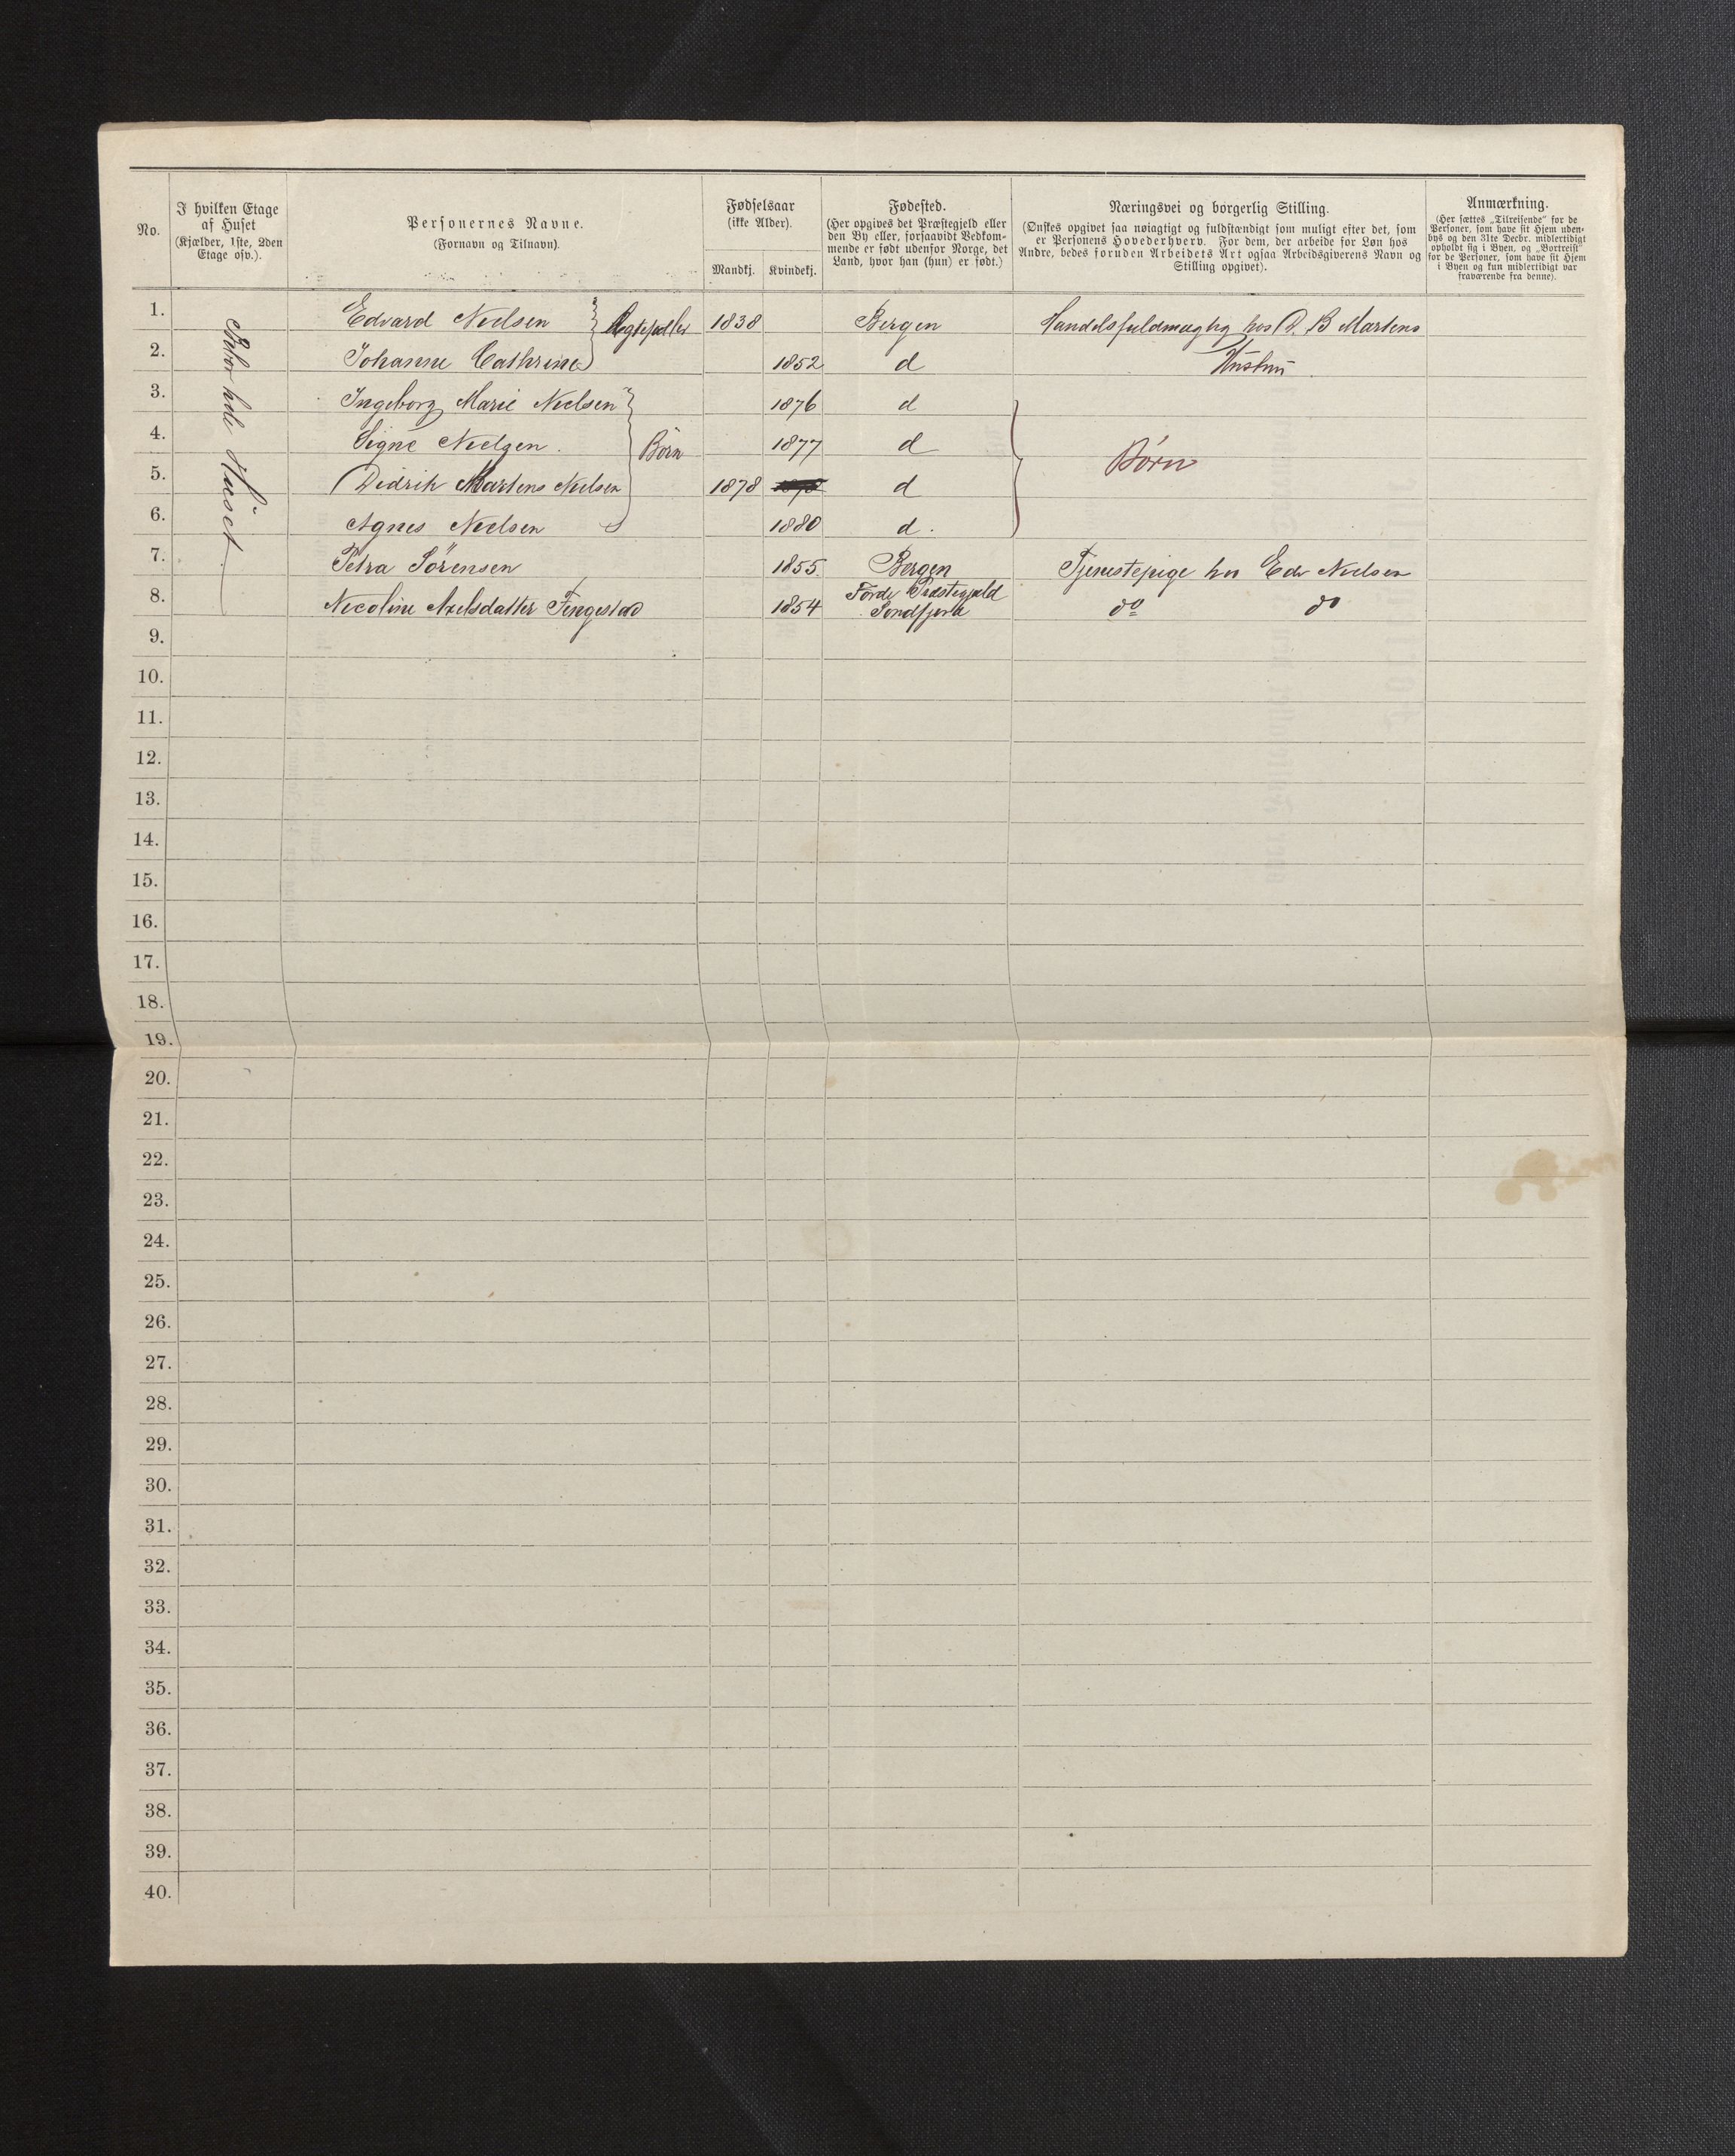 No.
I hvilken Etage
af Huset
(Kjælder, 1ste, 2den
Etage osv.).
Personernes Navne.
(Fornavn og Tilnavn).
Fødselsaar
(ikke Alder).
Mandkj. Kvindekj.
Fødested.
(Her opgives det Præstegjeld eller
den By eller, forsaavidt Vedkom-
mende er født udenfor Norge, det
Land, hvor han (hun) er født.)
Næringsvei og borgerlig Stilling.
(Ønskes opgivet saa nøiagtigt og fuldstændigt som muligt efter det, som
er Personens Hovederhverv. For dem, der arbeide for Løn hos
Andre, bedes foruden Arbeidets Art ogsaa Arbeidsgiverens Navn og
Stilling opgivet).
Anmærkning.
(Her sættes „Tilreisende“ for de
Personer, som have sit Hjem uden-
bys og den 31te Decbr. midlertidigt
opholdt sig i Byen, og „Bortreist“
for de Personer, som have sit Hjem
i Byen og kun midlertidigt var
fraværende fra denne).
Bebor hele Huset
1. Edvard Nielsen Ægtefolk 1838 Bergen Handelsfuldmægtig hos D. B Martens
2. Johanne Cathrine 1852 d Hustru
3. Ingeborg Marie Nielsen 1876 d
4. Signe Nielsen. Börn 1877 d Börn
5. Didrik Martens Nielsen 1878 d
6. Agnes Nielsen 1880 d.
7. Petra Sörensen 1855. Bergen Tjenestepige hos Edv Nielsen
8. Nicoline Axelsdatter 1854 Förde Præstegjæld
Söndfjord do do
9.
10.
11.
12.
13.
14.
15.
16.
17.
18.
19.
20.
21.
22.
23.
24.
25.
26.
27.
28.
29.
30.
31.
32.
33.
34.
35.
36.
37.
38.
39.
40.